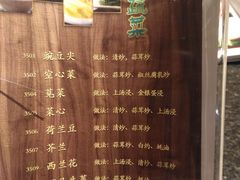 蔬菜
3501 豌豆尖 做法：清炒、蒜茸炒
3502 空心菜 做法：蒜茸炒、红丝腐乳炒
3503 苋菜 做法：上汤浸、金银蛋浸
3505 菜心 做法：清炒、蒜茸炒、上汤浸
3506 荷兰豆 做法：清炒、蒜茸炒
3507 芥兰 做法：蒜茸炒、白灼、蚝油
3509 西兰花 做法：上汤浸、清炒、蒜茸炒
菜 做法：清炒、蒜茸炒